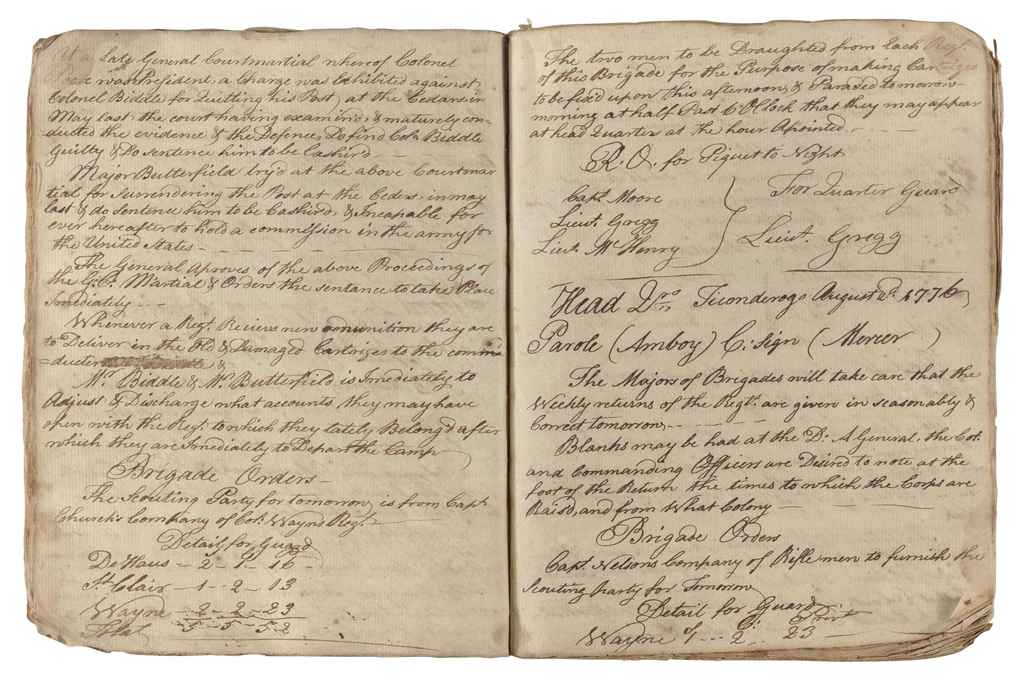 At a Late General Courtmartial whereof Colonel
was President, a Charge was Exhibited against
Colonel Biddle for Quitting his Post, at the Cedars in
May last the court having examin'd & maturely con-
ducted the evidence & the Defence, Do find Col: Biddle
Guilty & Do sentence him to be Cashier'd
Major Butterfield try'd at the above Courtmar
tial for Surrendering the Post at the Ceders in may
last & do Sentence him to be Cashier'd & Incapable for
ever hereafter to hold a commission in the army for
the United States
The General Aproves of the above Proceedings of
the G:C: Martial & Orders the sentance to take Place
Imediately
Whenever a Regt. Recieves new amunition they are
to Deliver in the Old & Damaged Cartrizes to the comm
=ducter &
Mr. Biddle & Mr. Butterfield is Imediately to
Adjust & Discharge what accounts they may have
open with the Regt. to which they lately Belong'd after
which they are Imediately to Depart the Camp
Brigade Orders
The Scouting Party for tomorrow, is from Capt.
Church's Company of Col. Wayns Regt.
Detail for Guard
DeHaus - 2 - 1 - 16
St. Clair - 1 - 2 - 13
Wayne - 2 - 2 - 23
Total 5 - 5 - 52
The two men to be Draughted from Each Regt.
of this Brigade for the Purpose of making Cartriges
to be fix'd upon this afternoon, & Paraded tomorrow
morning at half Past 6 OClock that they may appear
at head Quarters at the hour Apointed
R. O. for Piquet to Night
Capt. Moore
For Quarter Guard
Lieut. Gregg
Lieut. McHenry
Lieut. Gregg
Head Qrs Ticonderoga August 2d. 1776
Parole (Amboy) C: Sign (Mercer)
The Majors of Brigades will take care that the
Weekly returns of the Regts. are given in seasonably &
Correct tomorrow
Blanks may be had at the D: A General, the Col.
and Commanding Officers are Desired to note at the
foot of the Return the times to which the Corps are
Raisd, and from What Colony
Brigade Orders
Capt. Nelsons Company of Rifle men to furnish the
Scouting Party for Tomorrow
Detail for Guard
Privt
Wayne 1 - 2 - 23